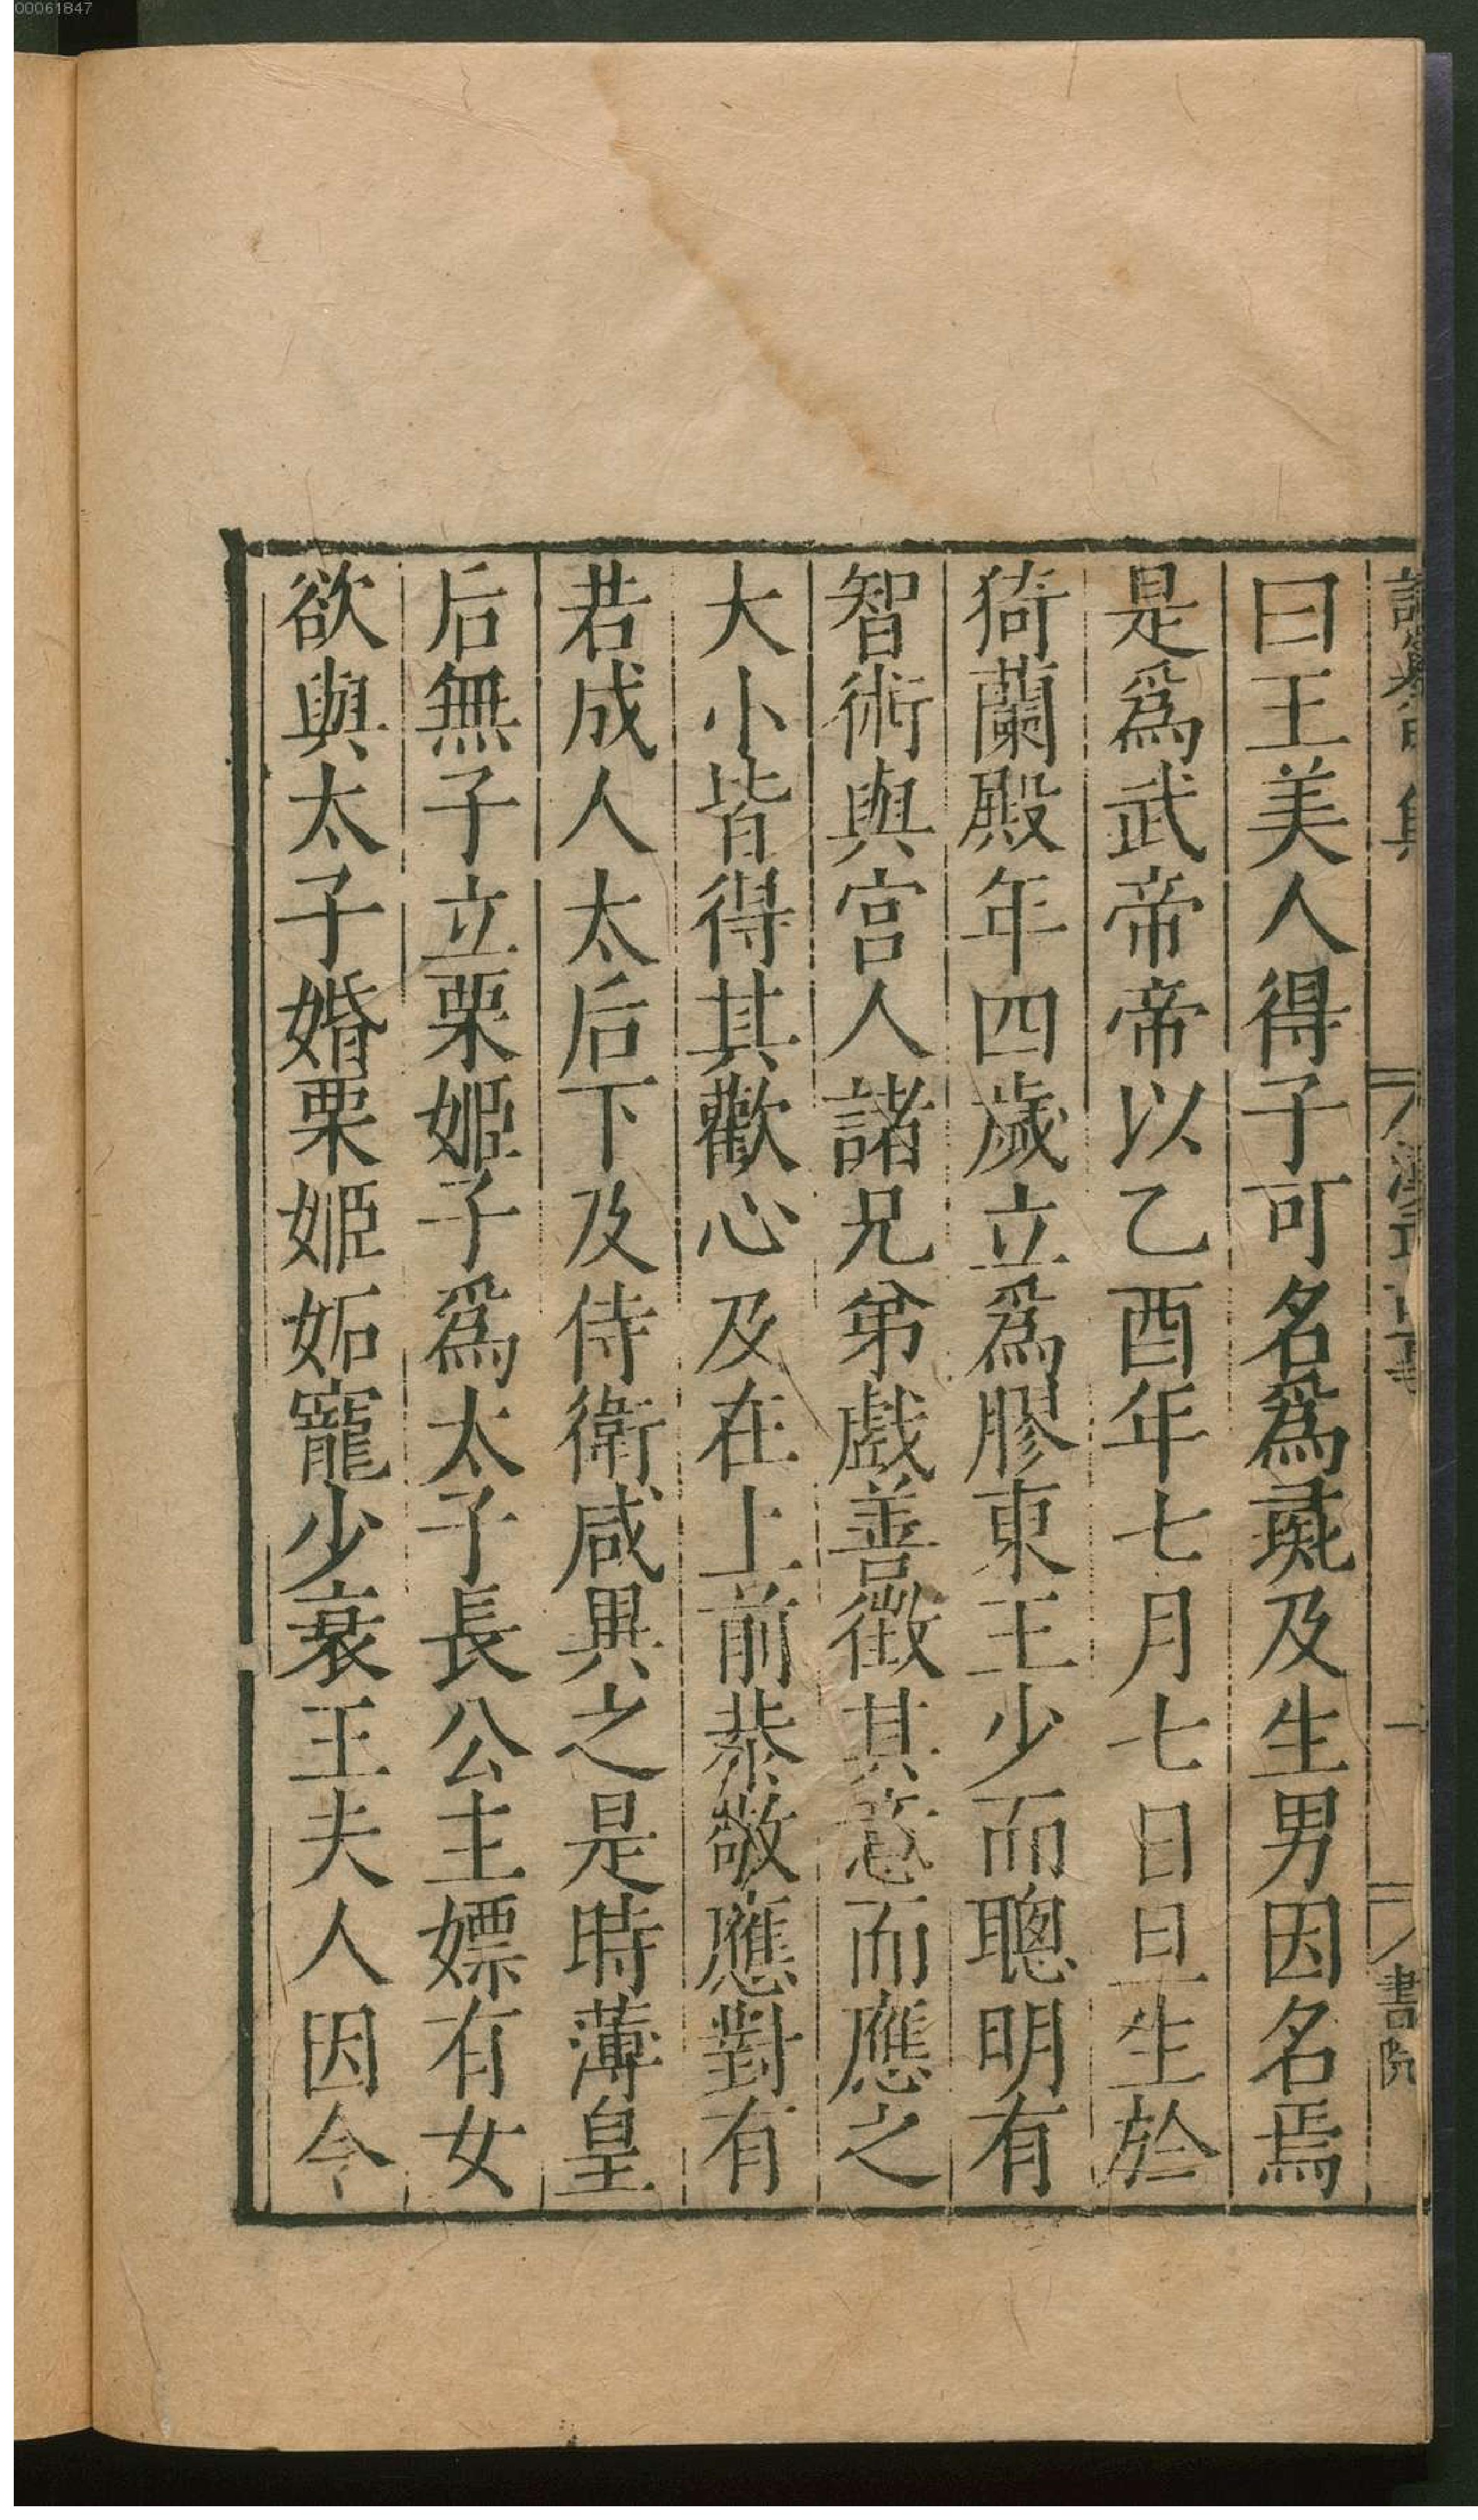 00061847
書院
曰王美人得子可名爲彘及生男因名焉
是爲武帝帝以乙酉年七月七日旦生於
猗蘭殿年四歲立爲膠東王少而聰明有
智術與宮人諸兄弟戲善徵其意而應之
大小皆得其歡心及在上前恭敬應對有
若成人太后下及侍衛咸異之是時薄皇
后無子立栗姬子爲太子長公主嫖有女
欲與太子婚栗姬妬寵少衰王夫人因令